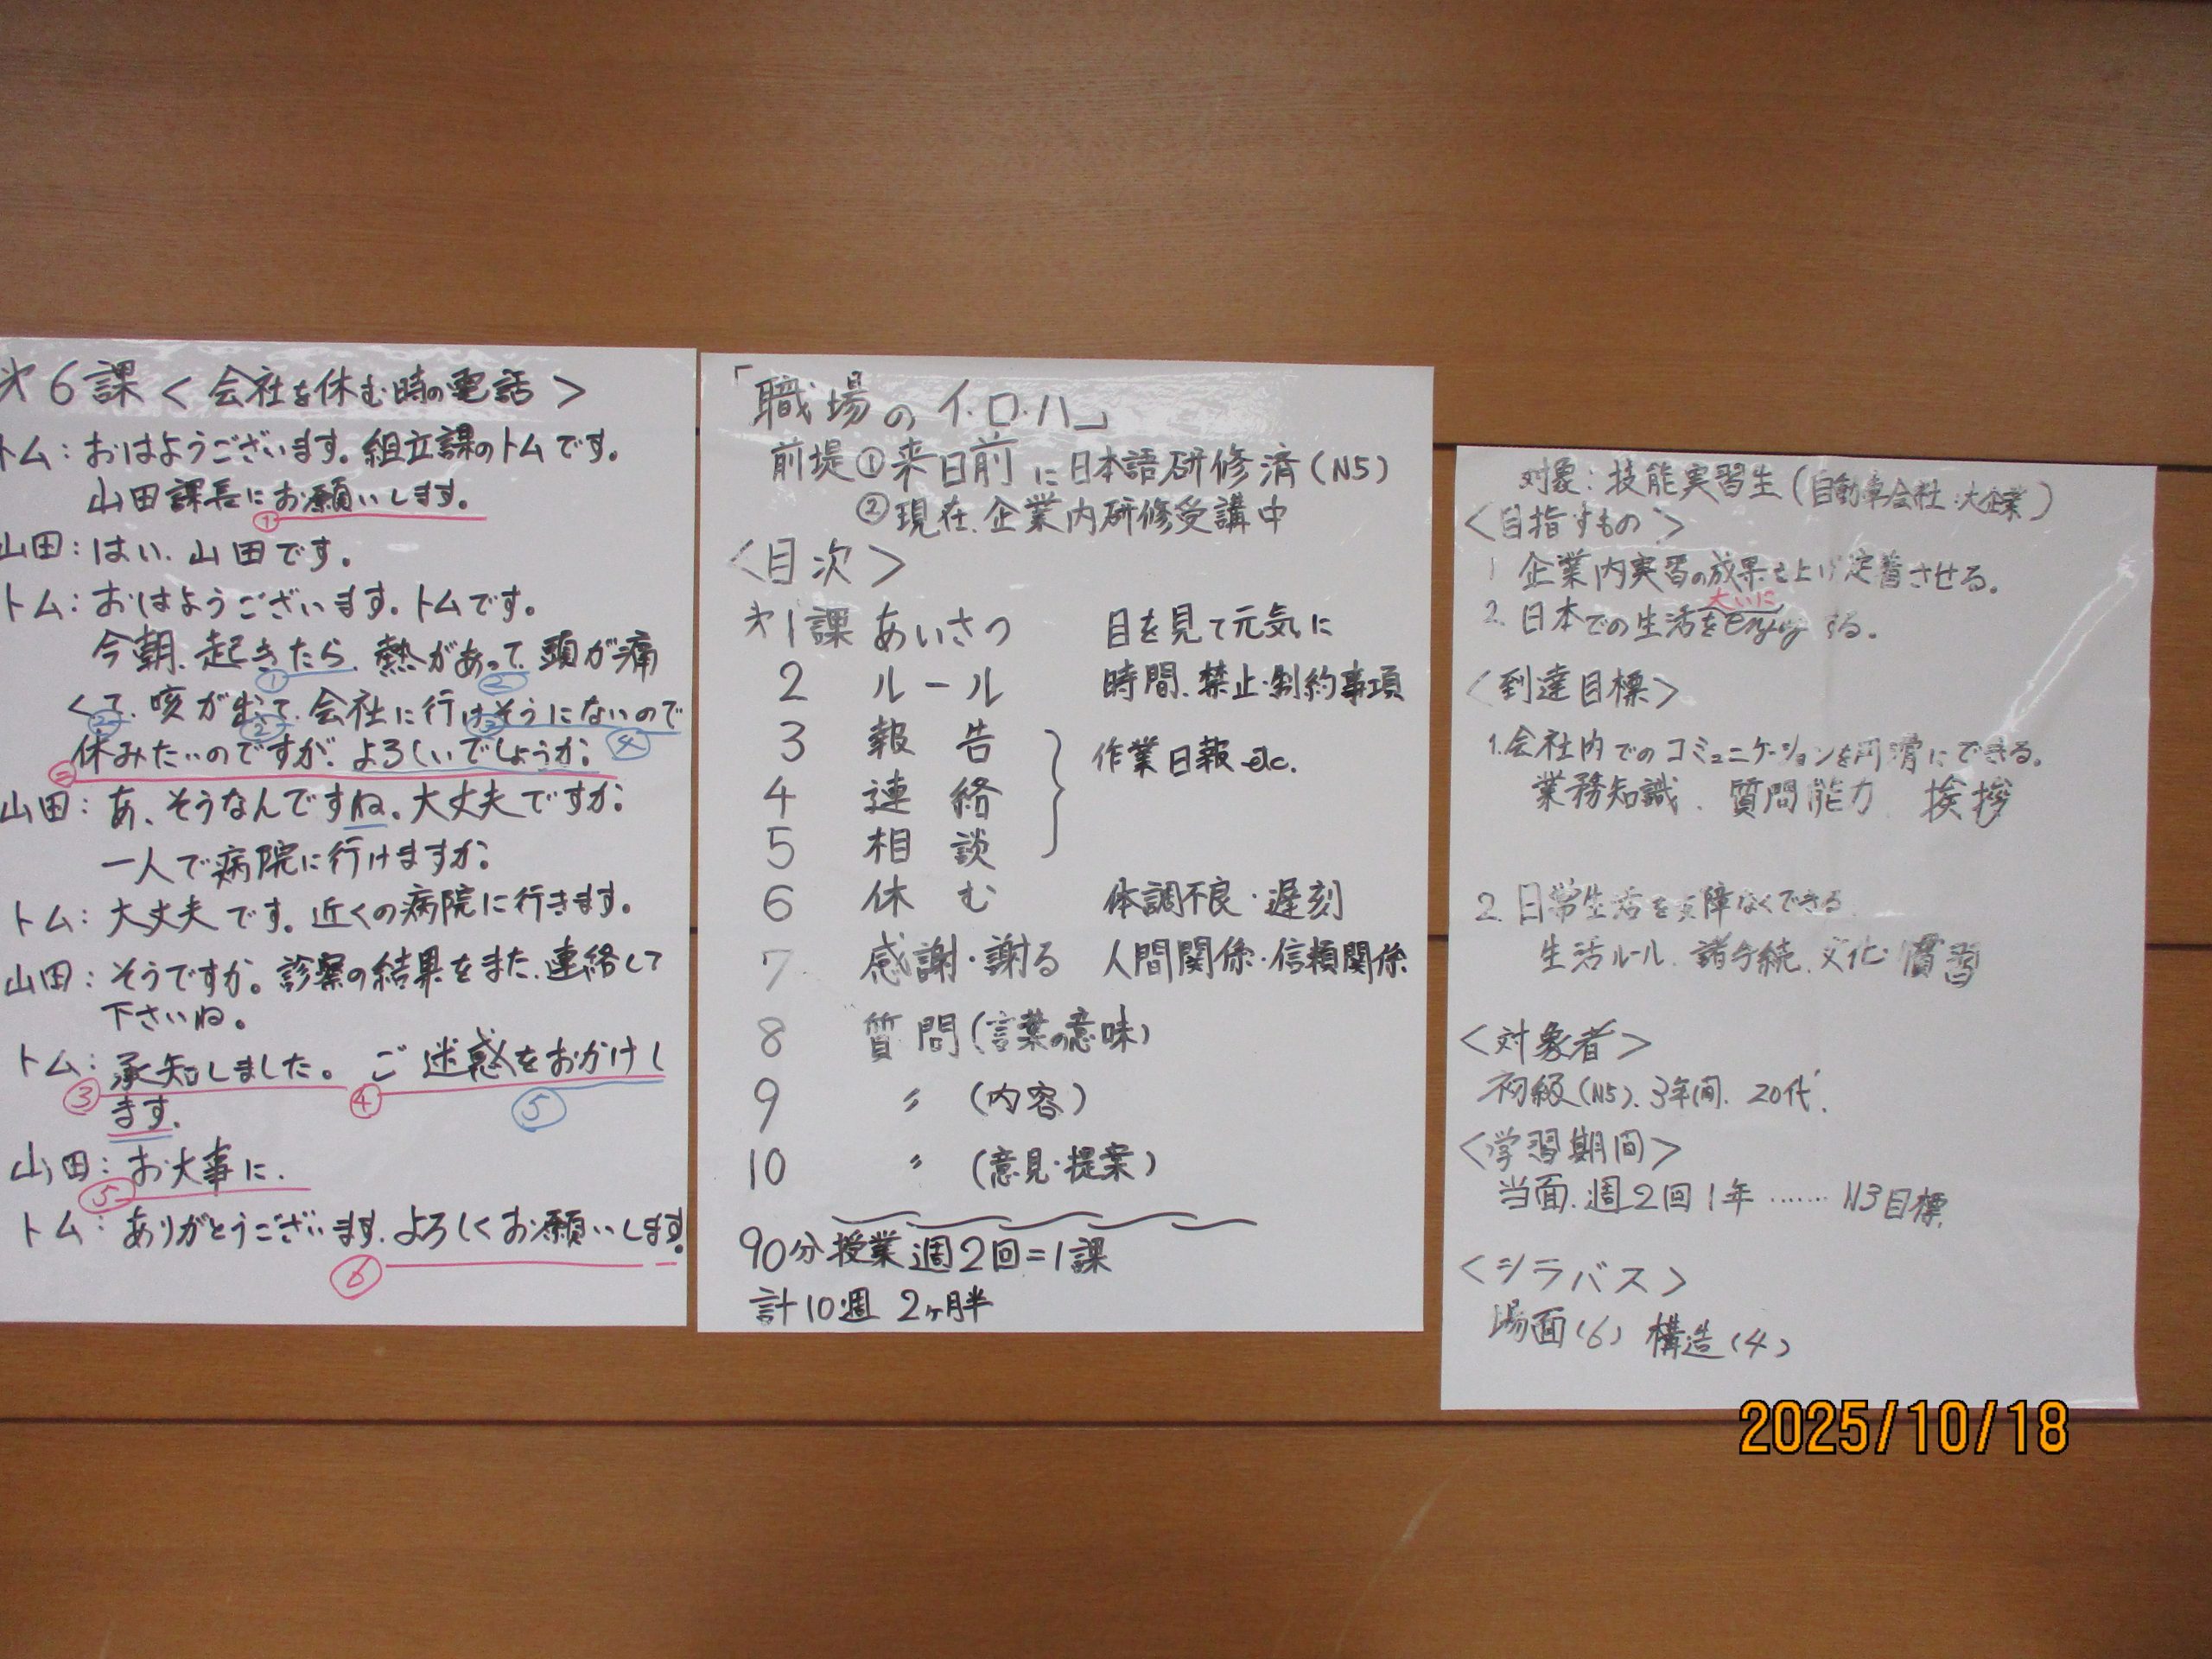 才6課<会社を休む時の電話>
トム：おはようございます。組立課のトムです。
山田課長にお願いします。
①
山田：はい、山田です。
トム：おはようございます。トムです。
今朝、起きたら、熱があって、頭が痛
① ②
くて、咳が出て、会社に行けそうにないので
② ② ③ ④
休みたいのですが、よろしいでしょうか。
②
山田：あ、そうなんですね。大丈夫ですか。
一人で病院に行けますか。
トム：大丈夫です。近くの病院に行きます。
山田：そうですか。診察の結果をまた、連絡して
下さいね。
トム：承知しました。ご迷惑をおかけし
③ ④ ⑤
ます。
山田：お大事に。
⑤
トム：ありがとうございます。よろしくお願いします。
⑥
「職場のイ・ロ・ハ」
前提①来日前に日本語研修済(N5)
②現在、企業内研修受講中
<目次>
才1課 あいさつ 目を見て元気に
2 ルール 時間、禁止・制約事項
3 報告
作業日報etc.
4 連絡
5 相談
6 休む 体調不良・遅刻
7 感謝・謝る 人間関係・信頼関係
8 質問(言葉の意味)
9 〃 (内容)
10 〃 (意見・提案)
90分授業週2回=1課
計10週 2ヶ月半
対象：技能実習生(自動車会社・大企業)
<目指すもの>
1 企業内実習の成果を上げ定着させる。
大いに
2. 日本での生活をenjoyする。
<到達目標>
1.会社内でのコミュニケーションを円滑にできる。
業務知識、質問能力、挨拶
2. 日常生活を支障なくできる
生活ルール、諸手続、文化・慣習
<対象者>
初級(N5)、3年間、20代
<学習期間>
当面、週2回1年……N3目標
<シラバス>
場面(6) 構造(4)
2025/10/18